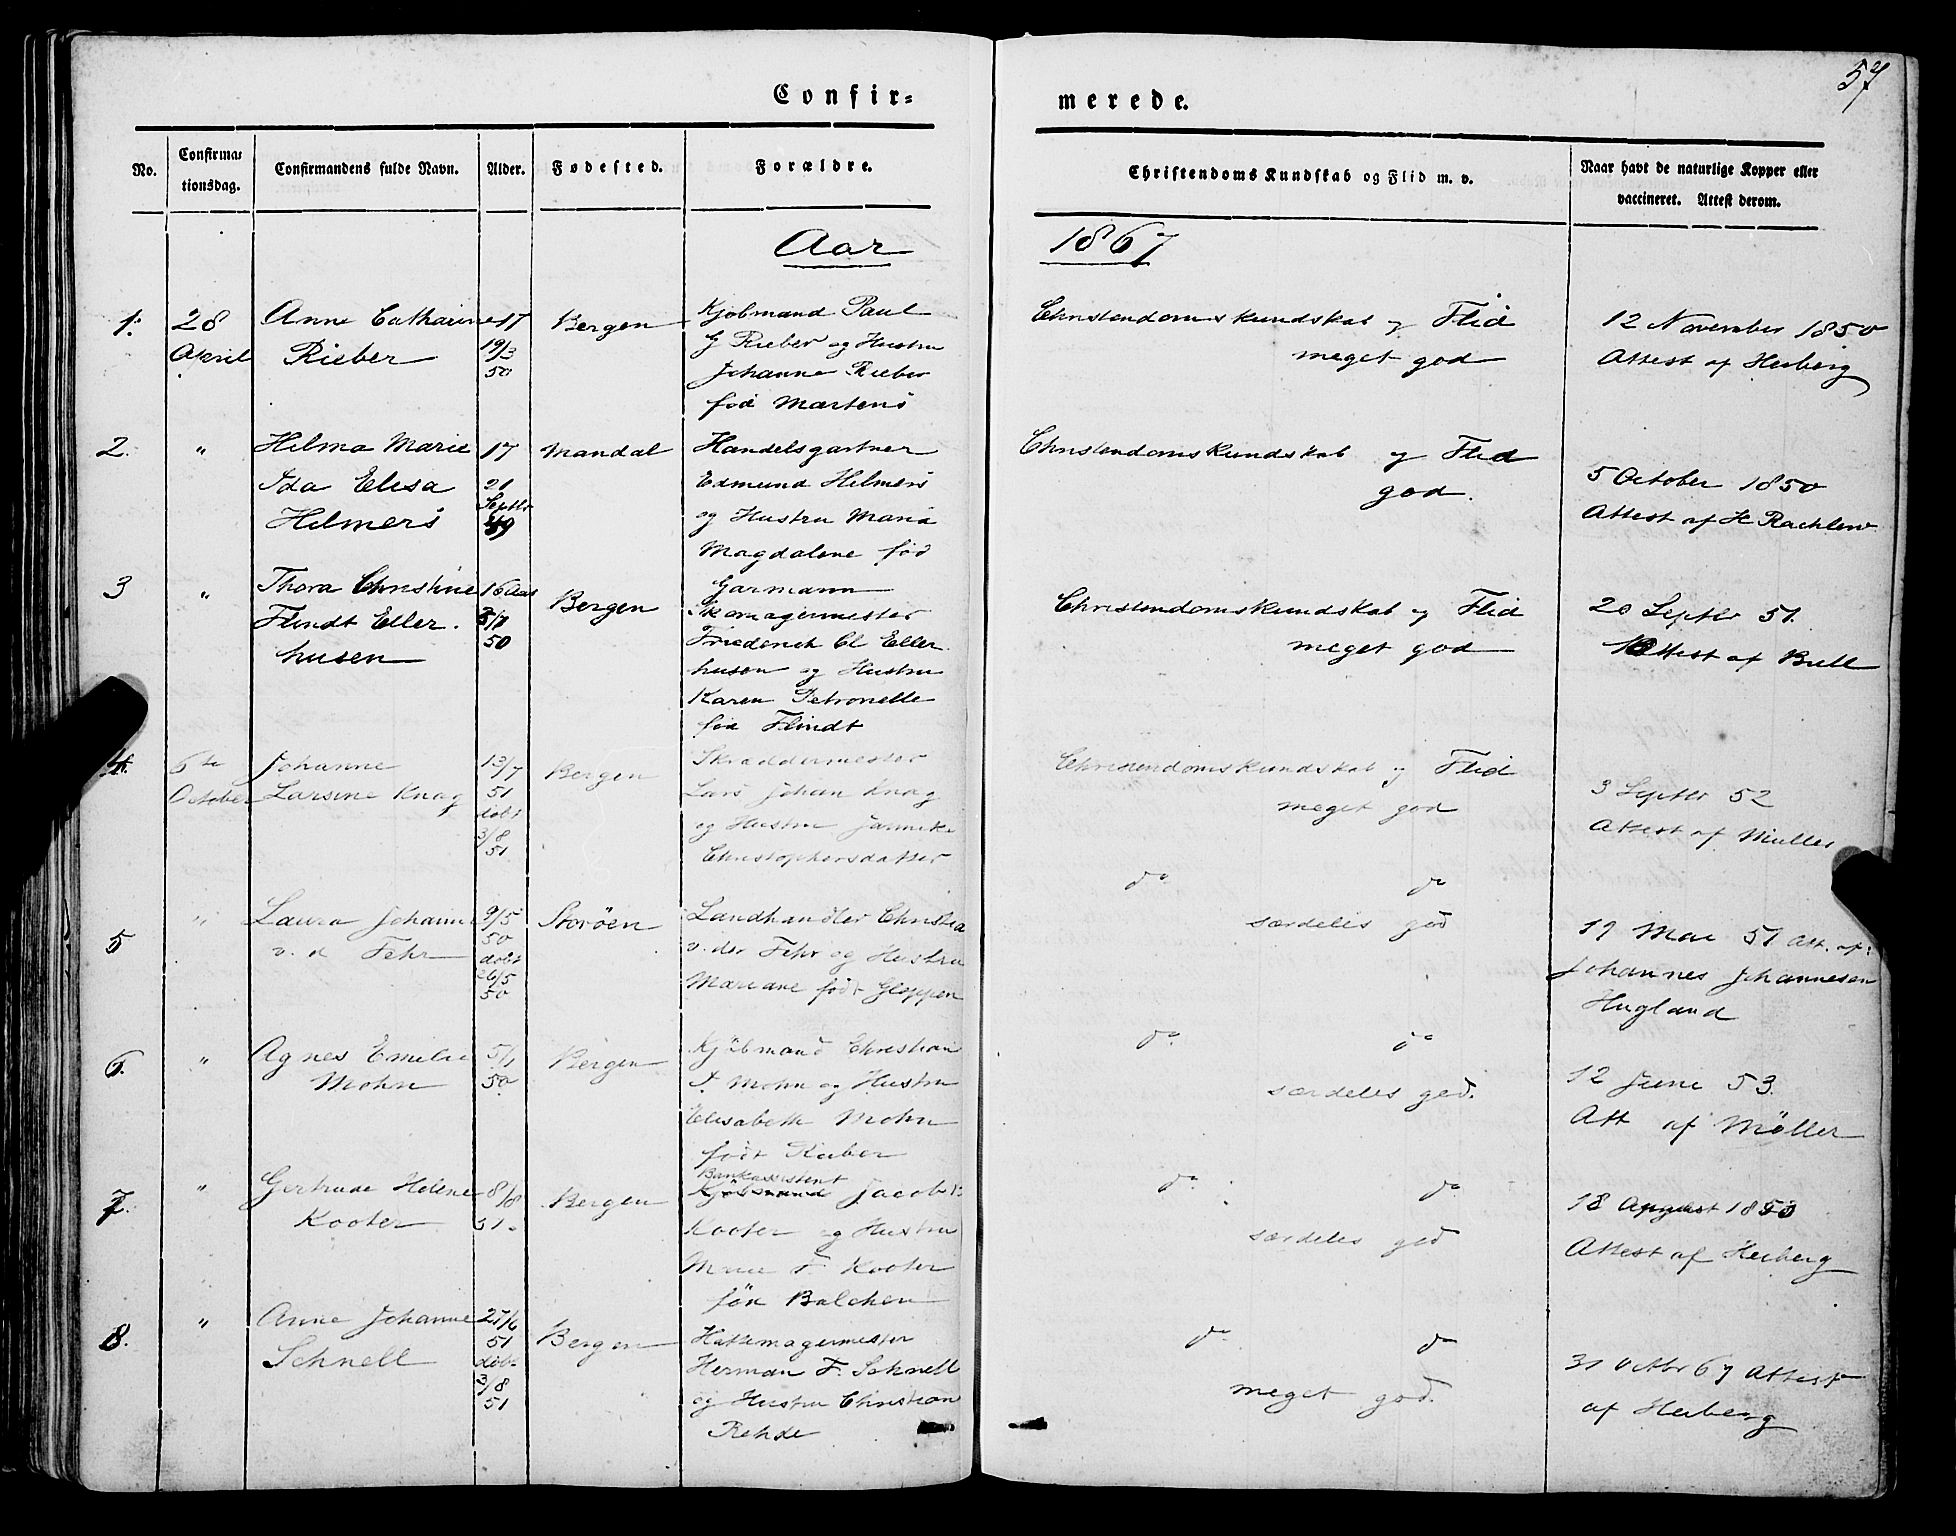 57
Confir=
merede.
No.
Confirma=
tionsdag.
Confirmandens fulde Navn.
Alder.
Fødested.
Forældre.
Christendoms Kundskab og Flid m. v.
Naar havt de naturlige Kopper eller
vaccineret. Attest derom.
Aar
1867
1.
28
April
Anne Cathaiine
Rieber
17
19/3
50
Bergen
Kjøbmand Paul
G Rieber og Hustru
Johanne Rieber
fød Martens
Christendomskundskab og Flid
meget god
12 November 1850
Attest af Heiberg
2.
"
Helma Marie
Ida Elisa
Helmers
17
21
Septbr
49
Mandal
Handelsgartner
Edmund Helmers
og Hustru Maria
Magdalene fød
Garmann
Christendomskundskab og Flid
god.
5 October 1850
Attest af H
3
"
Thora Christine
Flindt Eller.
husen
16 Aar
/7
50
Bergen
Skomagermester
Friederich Cl Eller
husen og Hustru
Karen Petronelle
fød Flindt
Christendomskundskab og Flid
meget god
20 Septbr 51.
Attest af Bull
4.
6te
October
Johanne
Larsine Knag
13/7
51
døbt
3/8
51
Bergen
Skraddermester
Lars Johan Knag
og Hustru Jannike
Christophersdatter
Christendomskundskab og Flid
meget god
3 Septbr 52
Attest af Müller
5
"
Laura Johanne
v. d Fehr
9/5
50
døbt
26/5
50
Storöen
Landhandler Christia
v. der Fehr og Hustru
Mariane født Gloppen
do
do
særdeles god
19 Mai 51 Att. af:
Johannes Johannesen
Hugland
6.
"
Agnes Emilie
Mohn
5/1
50.
Bergen
Kjöbmand Christian
. Mohn og Hustru
Elisabeth Mohn
født Rieber
do
do
særdeles god.
12 Juni 53.
Att af Møller
7.
"
Gertrude Helene
Kooter
8/8
51.
Bergen
Bankassistent
Kjøbmand Jacob
Kooter og Hustru
Marie F. Kooter
fød Balchen
do
do
særdeles god
18 August 1853
Attest af Heiberg
8.
"
Anne Johanne
Schnell
27/6
51
døbt
3/8
51
Bergen
Hattemagermester
Herman F. Schnell
og Hustru Christiane
Rehde
do
do
meget god.
31 Octbr 67 Attest
af Heiberg